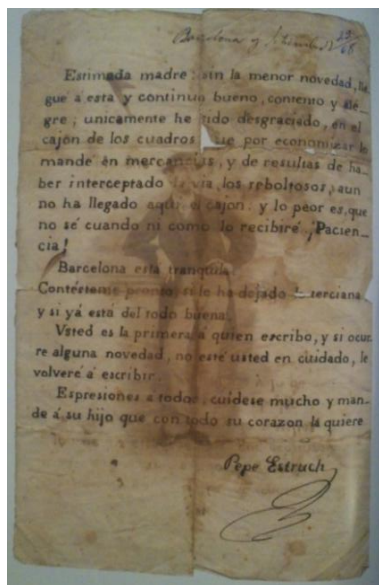 Barcelona y
68
Estimada madre: sin la menor novedad, lle
gue á esta y continuo bueno, contento y ale
gre; unicamente he sido desgraciado, en el
cajon de los cuadros que por economizar lo
mandé en mercancias, y de resultas de ha
ber interceptado la via, los reboltosos, aun
no ha llegado aqui el cajon: y lo peor es, que
no sé cuando ni como lo recibiré ¡Pacien-
cia!
Barcelona está tranquila
Contésteme pronto, si le ha dejado la terciana
y si yá está del todo buena.
Vsted es la primera á quien escribo, y si ocur
re alguna novedad, no esté usted en cuidado, le
volveré á escribir.
Espresiones a todos, cuídese mucho y man-
de á su hijo que con todo su corazon la quiere
Pepe Estruch